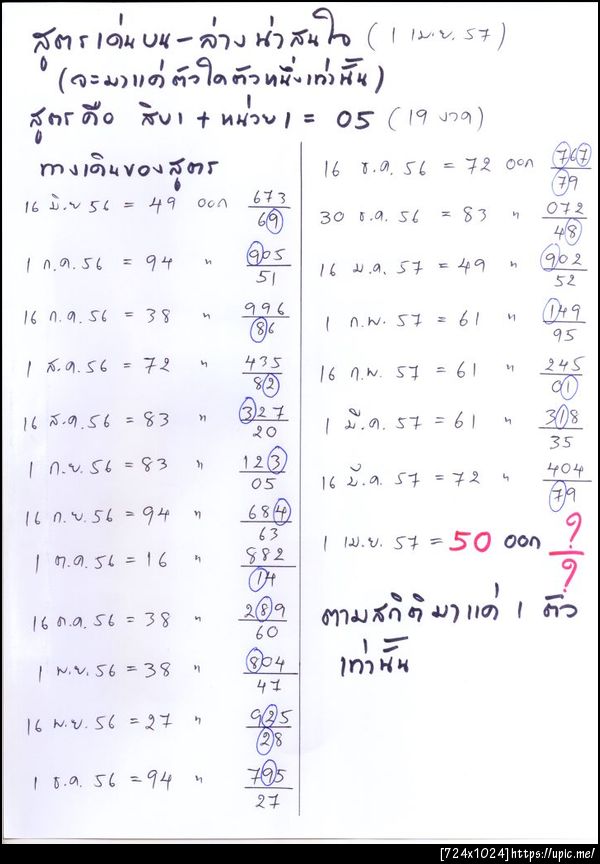 สูตรเด่นบน-ล่างน่าสนใจ (1 เม.ย. 57)
(จะมาแค่ตัวใดตัวหนึ่งเท่านั้น)
สูตรคือ สิบ1 + หน่วย1 = 05 (19 งวด)
ทางเดินของสูตร
16 มิ.ย 56 = 49 ออก 673
69
1 ก.ค. 56 = 94 " 905
51
16 ก.ค. 56 = 38 " 996
86
1 ส.ค. 56 = 72 " 435
82
16 ส.ค. 56 = 83 " 327
20
1 ก.ย. 56 = 83 " 123
05
16 ก.ย. 56 = 94 " 684
63
1 ต.ค. 56 = 16 " 882
14
16 ต.ค. 56 = 38 " 289
60
1 พ.ย. 56 = 38 " 804
47
16 พ.ย. 56 = 27 " 925
28
1 ธ.ค. 56 = 94 " 795
27
16 ธ.ค. 56 = 72 ออก 767
79
30 ธ.ค. 56 = 83 " 072
48
16 ม.ค. 57 = 49 " 902
52
1 ก.พ. 57 = 61 " 149
95
16 ก.พ. 57 = 61 " 245
01
1 มี.ค. 57 = 61 " 318
35
16 มี.ค. 57 = 72 " 404
79
1 เม.ย. 57 = 50 ออก ?
?
ตามสถิติมาแค่ 1 ตัว
เท่านั้น
[724x1024]https://upic.me/